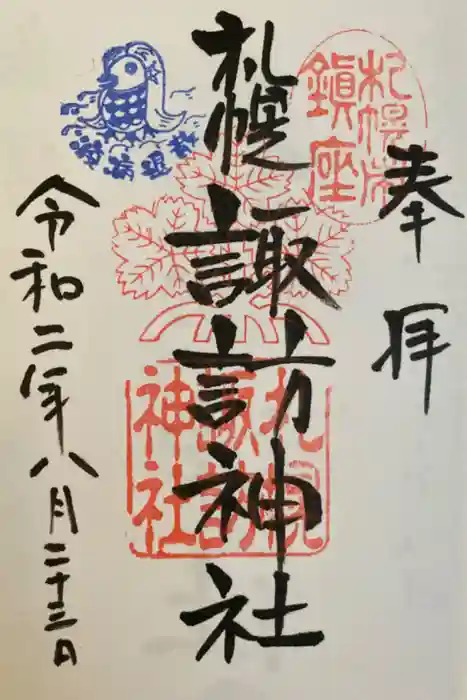 奉拝
札幌市鎮座
札幌諏訪神社
札幌諏訪神社
令和二年八月二十三日